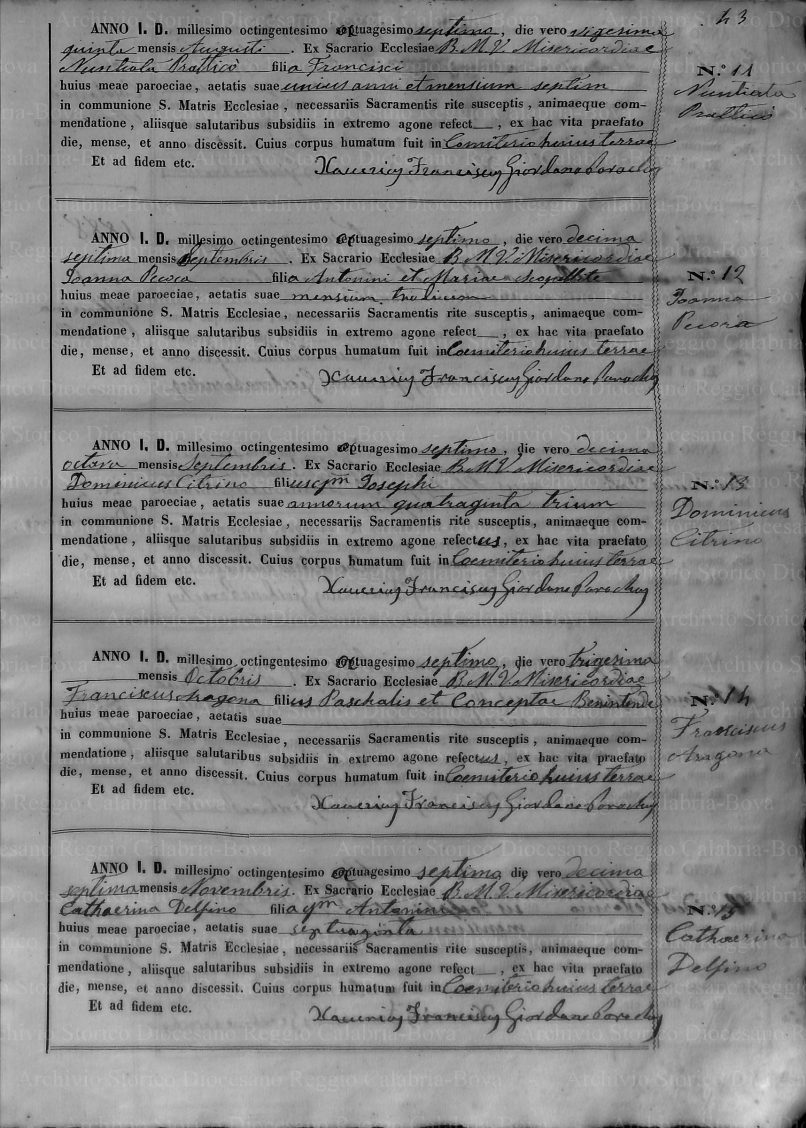 43
ANNO I. D. millesimo octingentesimo octuagesimo septimo, die vero vigesima
quinta mensis Augusti. Ex Sacrario Ecclesiae B. M. V. Misericordiae
Nuntiata Prattico filia Francisci
huius meae paroeciae, aetatis suae unius anni et mensium septem
in communione S. Matris Ecclesiae, necessariis Sacramentis rite susceptis, animaeque com-
mendatione, aliisque salutaribus subsidiis in extremo agone refect__, ex hac vita praefato
die, mense, et anno discessit. Cuius corpus humatum fuit in Coemiterio huius terrae
Et ad fidem etc.
Xaverius Franciscus Giordano Parochus
N.° 11
Nuntiata
Prattico
ANNO I. D. millesimo octingentesimo octuagesimo septimo, die vero decima
septima mensis Septembris. Ex Sacrario Ecclesiae B. M. V. Misericordiae
Joanna Pecora filia Antonini et Mariae
huius meae paroeciae, aetatis suae mensium
in communione S. Matris Ecclesiae, necessariis Sacramentis rite susceptis, animaeque com-
mendatione, aliisque salutaribus subsidiis in extremo agone refect__, ex hac vita praefato
die, mense, et anno discessit. Cuius corpus humatum fuit in Coemiterio huius terrae
Et ad fidem etc.
Xaverius Franciscus Giordano Parochus
N.° 12
Joanna
Pecora
ANNO I. D. millesimo octingentesimo octuagesimo septimo, die vero decima
octava mensis Septembris. Ex Sacrario Ecclesiae B. M. V. Misericordiae
Dominicus Citrino filius qm Josephi
huius meae paroeciae, aetatis suae annorum quatraginta trium
in communione S. Matris Ecclesiae, necessariis Sacramentis rite susceptis, animaeque com-
mendatione, aliisque salutaribus subsidiis in extremo agone refectus, ex hac vita praefato
die, mense, et anno discessit. Cuius corpus humatum fuit in Coemiterio huius terrae
Et ad fidem etc.
Xaverius Franciscus Giordano Parochus
N.° 13
Dominicus
Citrino
ANNO I. D. millesimo octingentesimo octuagesimo septimo, die vero trigesima
mensis Octobris. Ex Sacrario Ecclesiae B. M. V. Misericordiae
Franciscus Aragona filius Paschalis et Conceptae Benintende
huius meae paroeciae, aetatis suae
in communione S. Matris Ecclesiae, necessariis Sacramentis rite susceptis, animaeque com-
mendatione, aliisque salutaribus subsidiis in extremo agone refectus, ex hac vita praefato
die, mense, et anno discessit. Cuius corpus humatum fuit in Coemiterio huius terrae
Et ad fidem etc.
Xaverius Franciscus Giordano Parochus
N.° 14
Franciscus
Aragona
ANNO I. D. millesimo octingentesimo octuagesimo septimo, die vero decima
septima mensis Novembris. Ex Sacrario Ecclesiae B. M. V. Misericordiae
Cathaerina Delfino filia qm Antonini
huius meae paroeciae, aetatis suae septuaginta
in communione S. Matris Ecclesiae, necessariis Sacramentis rite susceptis, animaeque com-
mendatione, aliisque salutaribus subsidiis in extremo agone refect__, ex hac vita praefato
die, mense, et anno discessit. Cuius corpus humatum fuit in Coemiterio huius terrae
Et ad fidem etc.
Xaverius Franciscus Giordano Parochus
N.° 15
Cathaerina
Delfino
Archivio Storico Diocesano Reggio Calabria-Bova